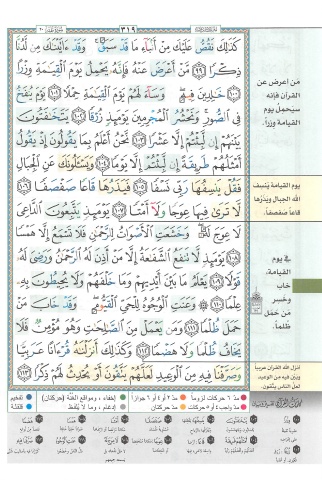 ٣١٩
كَذَٰلِكَ نَقُصُّ عَلَيْكَ مِنْ أَنۢبَآءِ مَا قَدْ سَبَقَ ۚ وَقَدْ ءَاتَيْنَٰكَ مِن لَّدُنَّا
ذِكْرًا ﴿٩٩﴾ مَّنْ أَعْرَضَ عَنْهُ فَإِنَّهُۥ يَحْمِلُ يَوْمَ ٱلْقِيَٰمَةِ وِزْرًا
﴿١٠٠﴾ خَٰلِدِينَ فِيهِ ۖ وَسَآءَ لَهُمْ يَوْمَ ٱلْقِيَٰمَةِ حِمْلًا ﴿١٠١﴾ يَوْمَ يُنفَخُ
فِى ٱلصُّورِ ۚ وَنَحْشُرُ ٱلْمُجْرِمِينَ يَوْمَئِذٍ زُرْقًا ﴿١٠٢﴾ يَتَخَٰفَتُونَ
بَيْنَهُمْ إِن لَّبِثْتُمْ إِلَّا عَشْرًا ﴿١٠٣﴾ نَّحْنُ أَعْلَمُ بِمَا يَقُولُونَ إِذْ يَقُولُ
أَمْثَلُهُمْ طَرِيقَةً إِن لَّبِثْتُمْ إِلَّا يَوْمًا ﴿١٠٤﴾ وَيَسْـَٔلُونَكَ عَنِ ٱلْجِبَالِ
فَقُلْ يَنسِفُهَا رَبِّى نَسْفًا ﴿١٠٥﴾ فَيَذَرُهَا قَاعًا صَفْصَفًا ﴿١٠٦﴾
لَّا تَرَىٰ فِيهَا عِوَجًا وَلَآ أَمْتًا ﴿١٠٧﴾ يَوْمَئِذٍ يَتَّبِعُونَ ٱلدَّاعِىَ
لَا عِوَجَ لَهُۥ ۖ وَخَشَعَتِ ٱلْأَصْوَاتُ لِلرَّحْمَٰنِ فَلَا تَسْمَعُ إِلَّا هَمْسًا
﴿١٠٨﴾ يَوْمَئِذٍ لَّا تَنفَعُ ٱلشَّفَٰعَةُ إِلَّا مَنْ أَذِنَ لَهُ ٱلرَّحْمَٰنُ وَرَضِىَ لَهُۥ
قَوْلًا ﴿١٠٩﴾ يَعْلَمُ مَا بَيْنَ أَيْدِيهِمْ وَمَا خَلْفَهُمْ وَلَا يُحِيطُونَ بِهِۦ
عِلْمًا ﴿١١٠﴾ وَعَنَتِ ٱلْوُجُوهُ لِلْحَىِّ ٱلْقَيُّومِ ۖ وَقَدْ خَابَ مَنْ
حَمَلَ ظُلْمًا ﴿١١١﴾ وَمَن يَعْمَلْ مِنَ ٱلصَّٰلِحَٰتِ وَهُوَ مُؤْمِنٌ فَلَا
يَخَافُ ظُلْمًا وَلَا هَضْمًا ﴿١١٢﴾ وَكَذَٰلِكَ أَنزَلْنَٰهُ قُرْءَانًا عَرَبِيًّا
وَصَرَّفْنَا فِيهِ مِنَ ٱلْوَعِيدِ لَعَلَّهُمْ يَتَّقُونَ أَوْ يُحْدِثُ لَهُمْ ذِكْرًا ﴿١١٣﴾
من أعرض عن
القرآن فإنه
سيحمل يوم
القيامة وزراً.
يوم القيامة ينسف
الله الجبال ويذرها
قاعاً صفصفاً.
في يوم
القيامة،
خاب
وخسر
من حمل
ظلماً.
انزل الله القرآن عربياً
وبين فيه من الوعيد
لعل الناس يتقون.